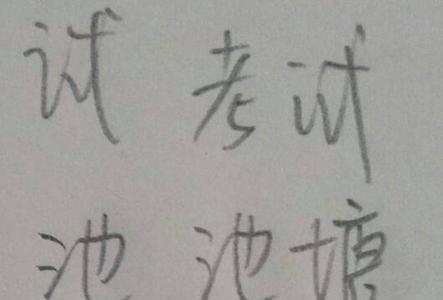 试 考试
池 池塘